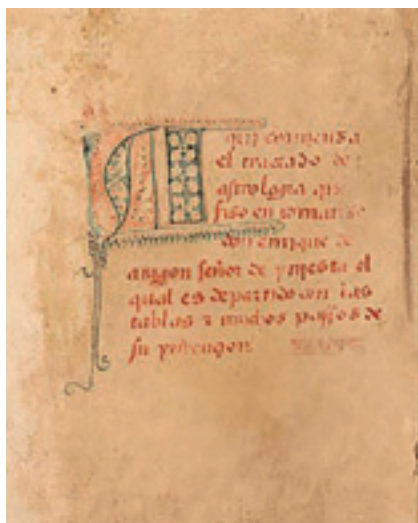 Aqui comiensa
el tractado de
astrologia que
fiso en romanse
don enrique de
aragon señor de yniesta el
qual es departido con las
tablas z muchos passos de
su